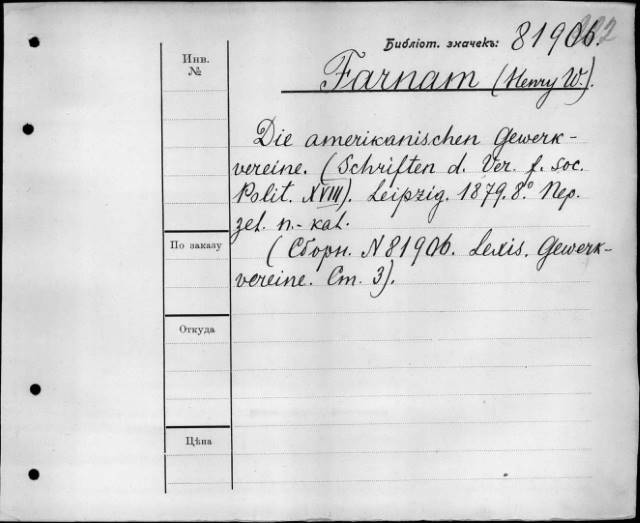 Библіот. значекъ: 81906.
Инв.
№
Farnam (Henry W.).
Die amerikanischen Gewerk-
vereine. (Schriften d. Ver. f. soc.
Polit. XVIII). Leipzig. 1879. 8.° Пер.
zel. n.-kal.
По заказу
(Сборн. N 81906. Lexis. Gewerk-
vereine. Ст. 3).
Откуда
Цѣна